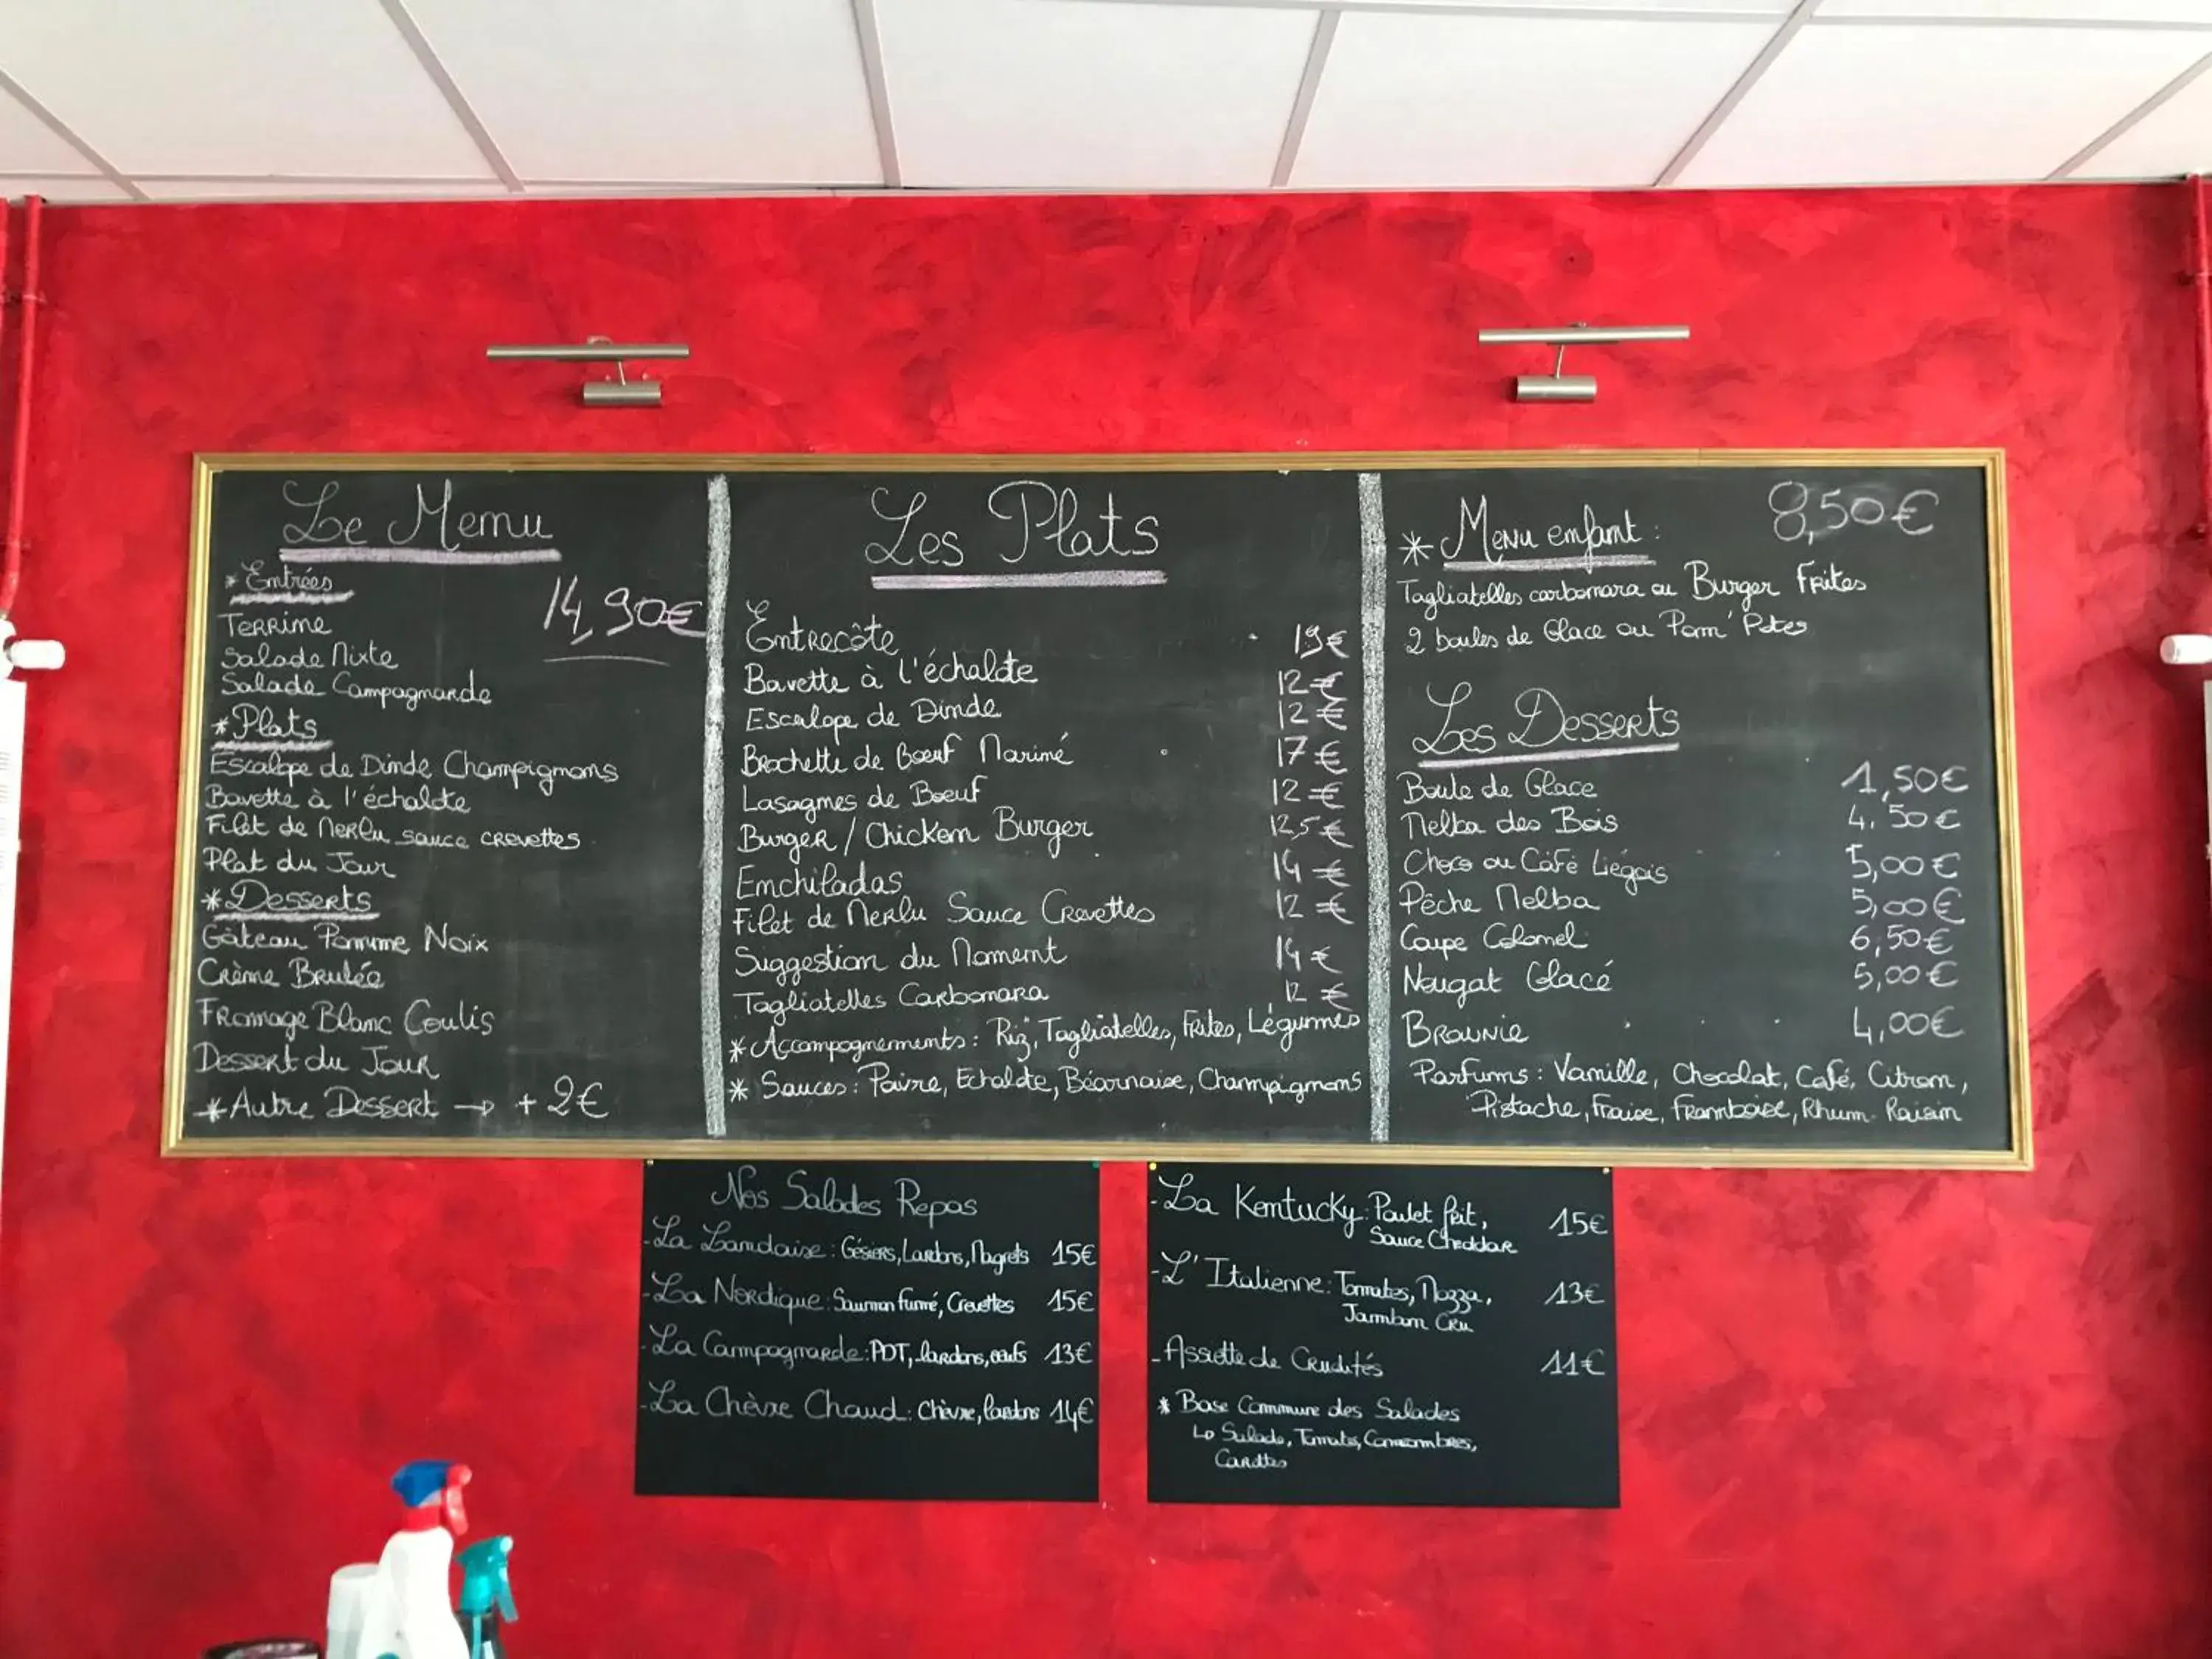 Le Menu
* Entrées
14,90€
Terrine
Salade Mixte
Salade Campagnarde
* Plats
Escalope de Dinde Champignons
Bavette à l'échalote
Filet de Merlu sauce crevettes
Plat du Jour
* Desserts
Gâteau Pomme Noix
Crème Brulée
Fromage Blanc Coulis
Dessert du Jour
* Autre Dessert → + 2€
Les Plats
Entrecôte 19€
Bavette à l'échalote 12€
Escalope de Dinde 12€
Brochette de Bœuf Mariné 17€
Lasagnes de Boeuf 12€
Burger / Chicken Burger 12,5€
Enchiladas 14€
Filet de Merlu Sauce Crevettes 12€
Suggestion du Moment 14€
Tagliatelles Carbonara 12€
* Accompagnements : Riz, Tagliatelles, Frites, Légumes
* Sauces : Poivre, Echalote, Béarnaise, Champignons
* Menu enfant : 8,50€
Tagliatelles carbonara ou Burger Frites
2 boules de Glace ou Pom' Potes
Les Desserts
Boule de Glace 1,50€
Melba des Bois 4.50€
Choco ou Café Liégois 5,00€
Pêche Melba 5,00€
Coupe Colonel 6,50€
Nougat Glacé 5,00€
Brownie 4,00€
Parfums : Vanille, Chocolat, Café, Citron,
Pistache, Fraise, Framboise, Rhum-Raisin
Nos Salades Repas
- La Landaise : Gésiers, Lardons, Magrets 15€
- La Nordique : Saumon fumé, Crevettes 15€
- La Campagnarde : PDT, lardons, oeufs 13€
- La Chèvre Chaud : Chèvre, lardons 14€
- La Kentucky : Poulet frit, 15€
Sauce Cheddar
- L'Italienne : Tomates, Mozza, 13€
Jambon Cru
- Assiette de Crudités 11€
* Base Commune des Salades
↳ Salade, Tomates, Concombres,
Carottes